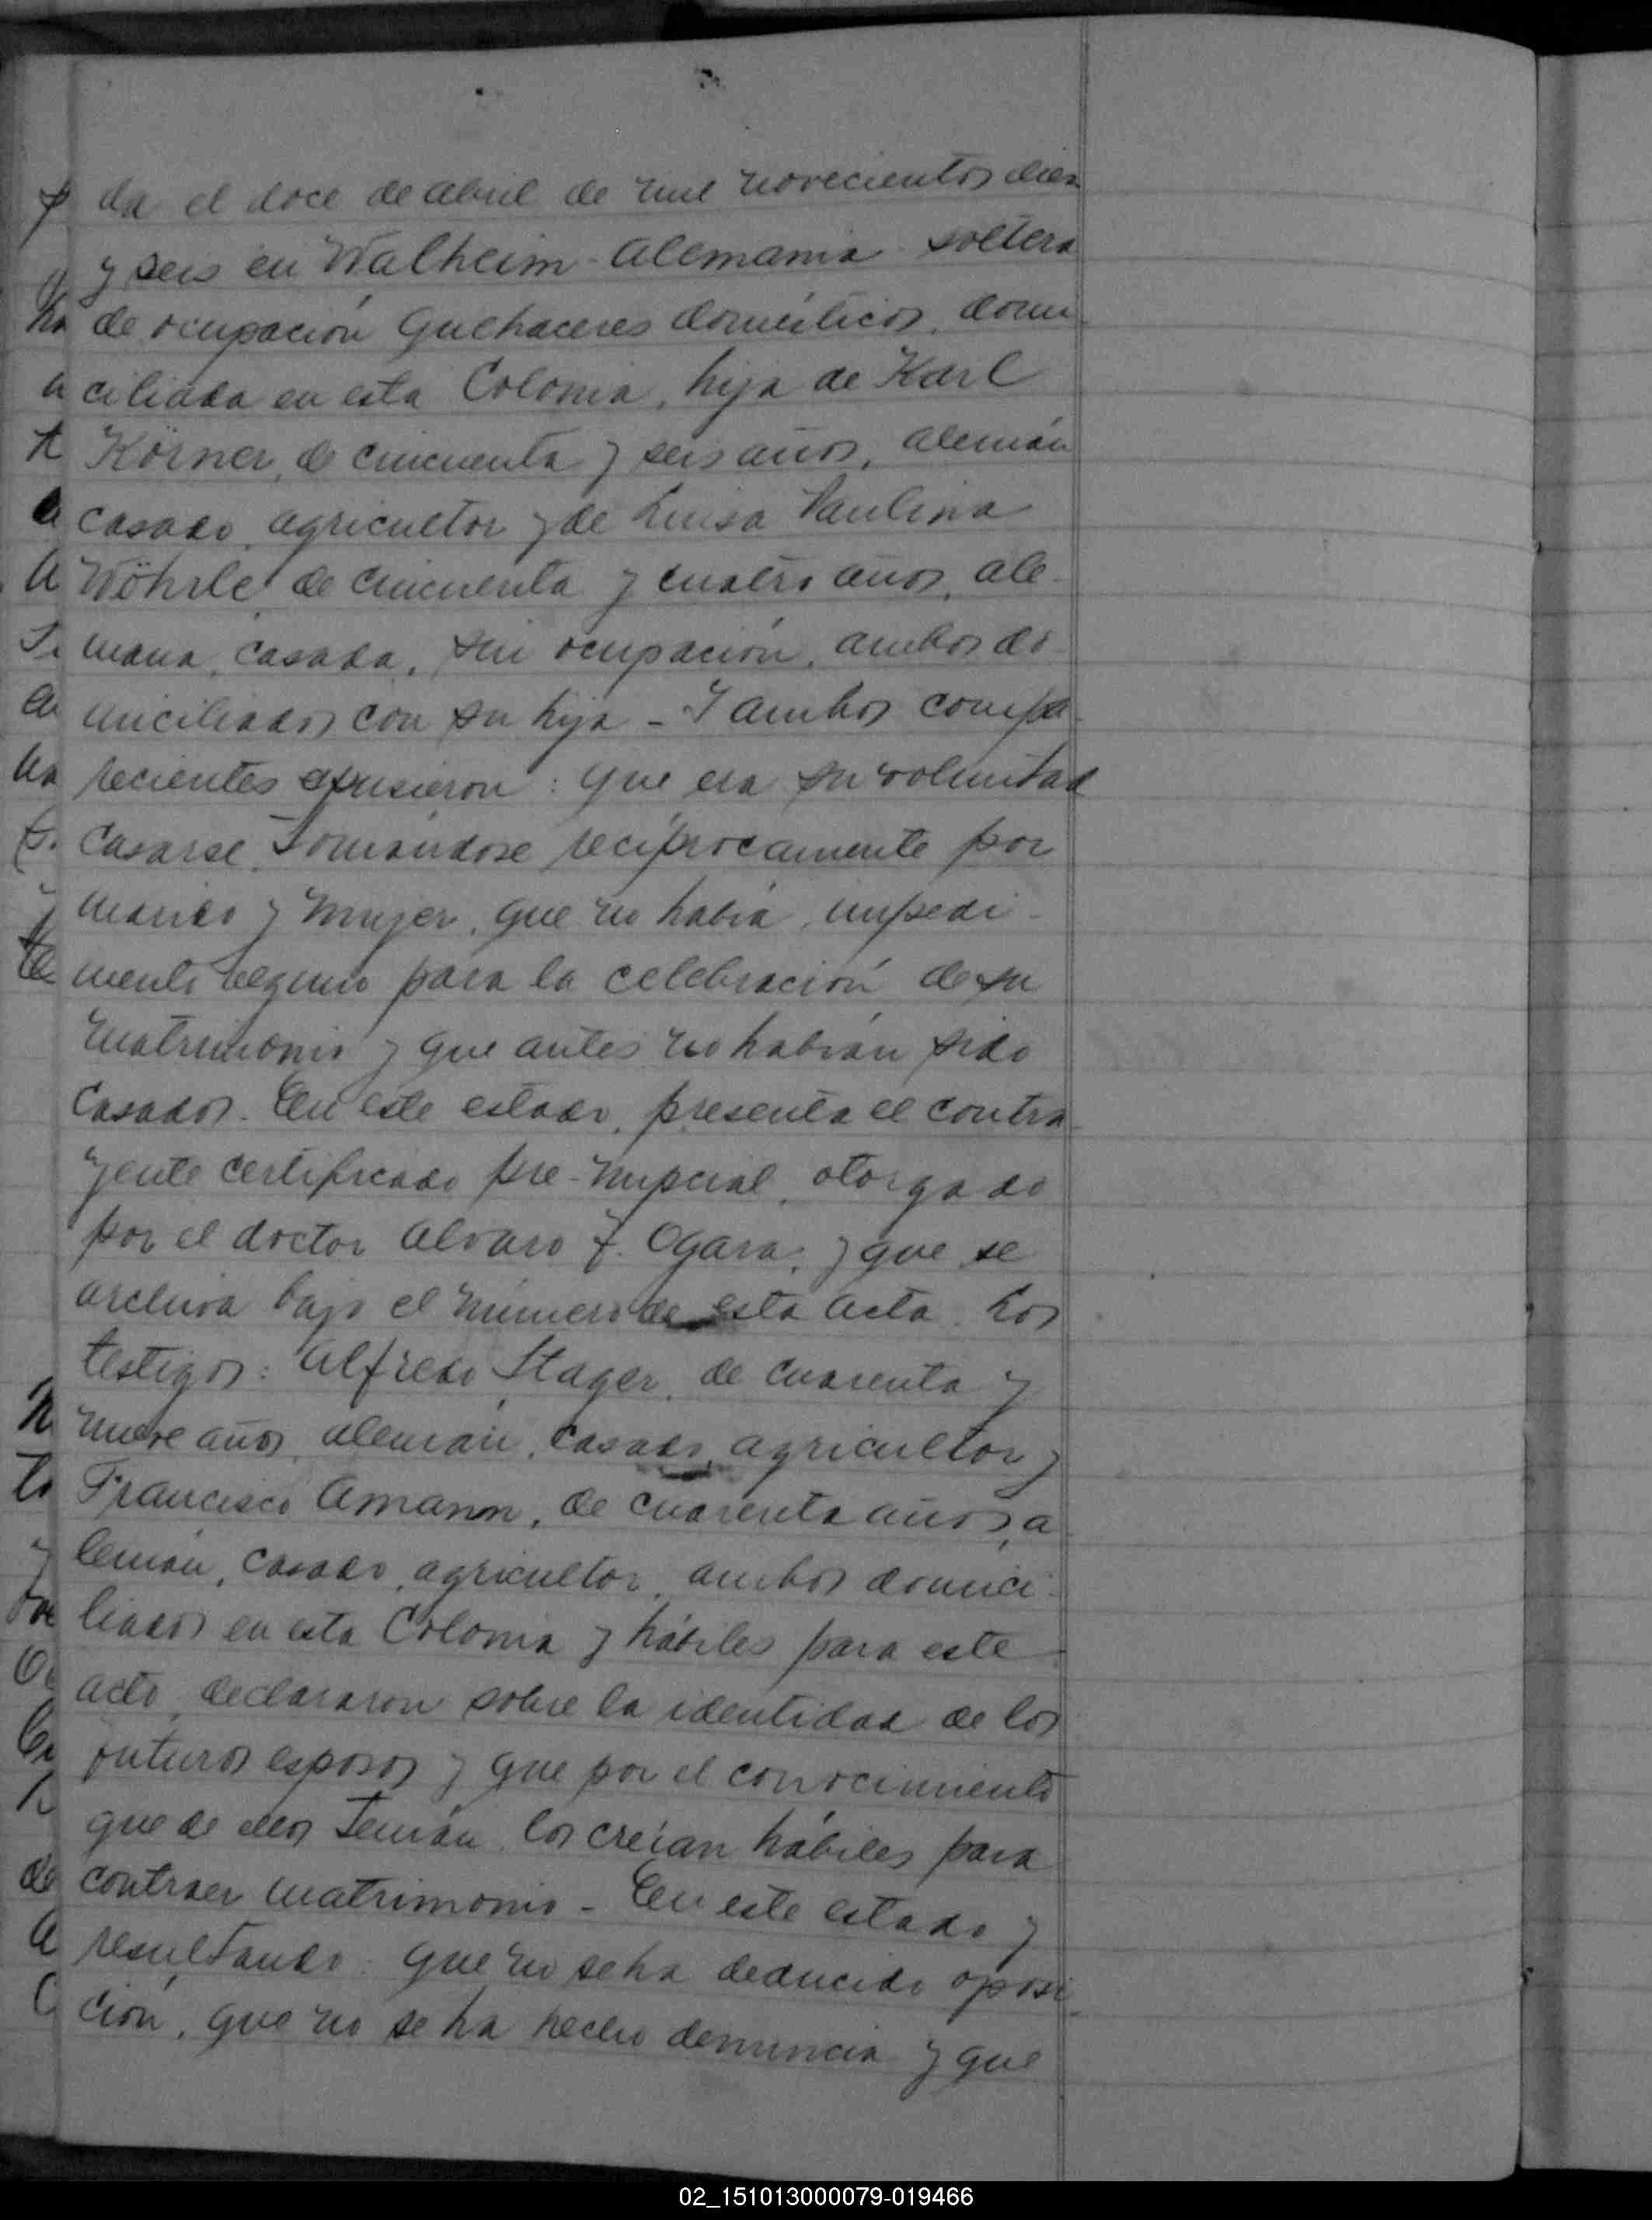 da el doce de abril de mil novecientos diez
y seis en Walheim - Alemania soltera
de ocupación quehaceres domésticos, domi
ciliada en esta Colonia, hija de Karl
Körner, de cincuenta y seis años, alemán
casado, agricultor y de Luisa Paulina
Wöhrle, de cincuenta y cuatro años, ale-
mana, casada, sin ocupación, ambos do-
miciliados con su hija - Y ambos compa-
recientes expusieron: que era su voluntad
casarse, tomándose recíprocamente por
marido y mujer, que no había impedi-
mento alguno para la celebración de su
matrimonio y que antes no habían sido
casados. En este estado, presenta el contra-
yente certificado pre-nupcial, otorgado
por el doctor Alvaro F. Ogara, y que se
archiva bajo el número de esta acta. Los
testigos: Alfredo Stager, de cuarenta y
nueve años, alemán, casado, agricultor y
Francisco Amann, de cuarenta años, a-
lemán, casado, agricultor, ambos domici-
liados en esta Colonia y hábiles para este
acto, declararon sobre la identidad de los
futuros esposos y que por el conocimiento
que de ellos tenían los creían hábiles para
contraer matrimonio - En este estado y
resultando: que no se ha deducido oposi-
ción, que no se ha hecho denuncia y que
02_151013000079-019466